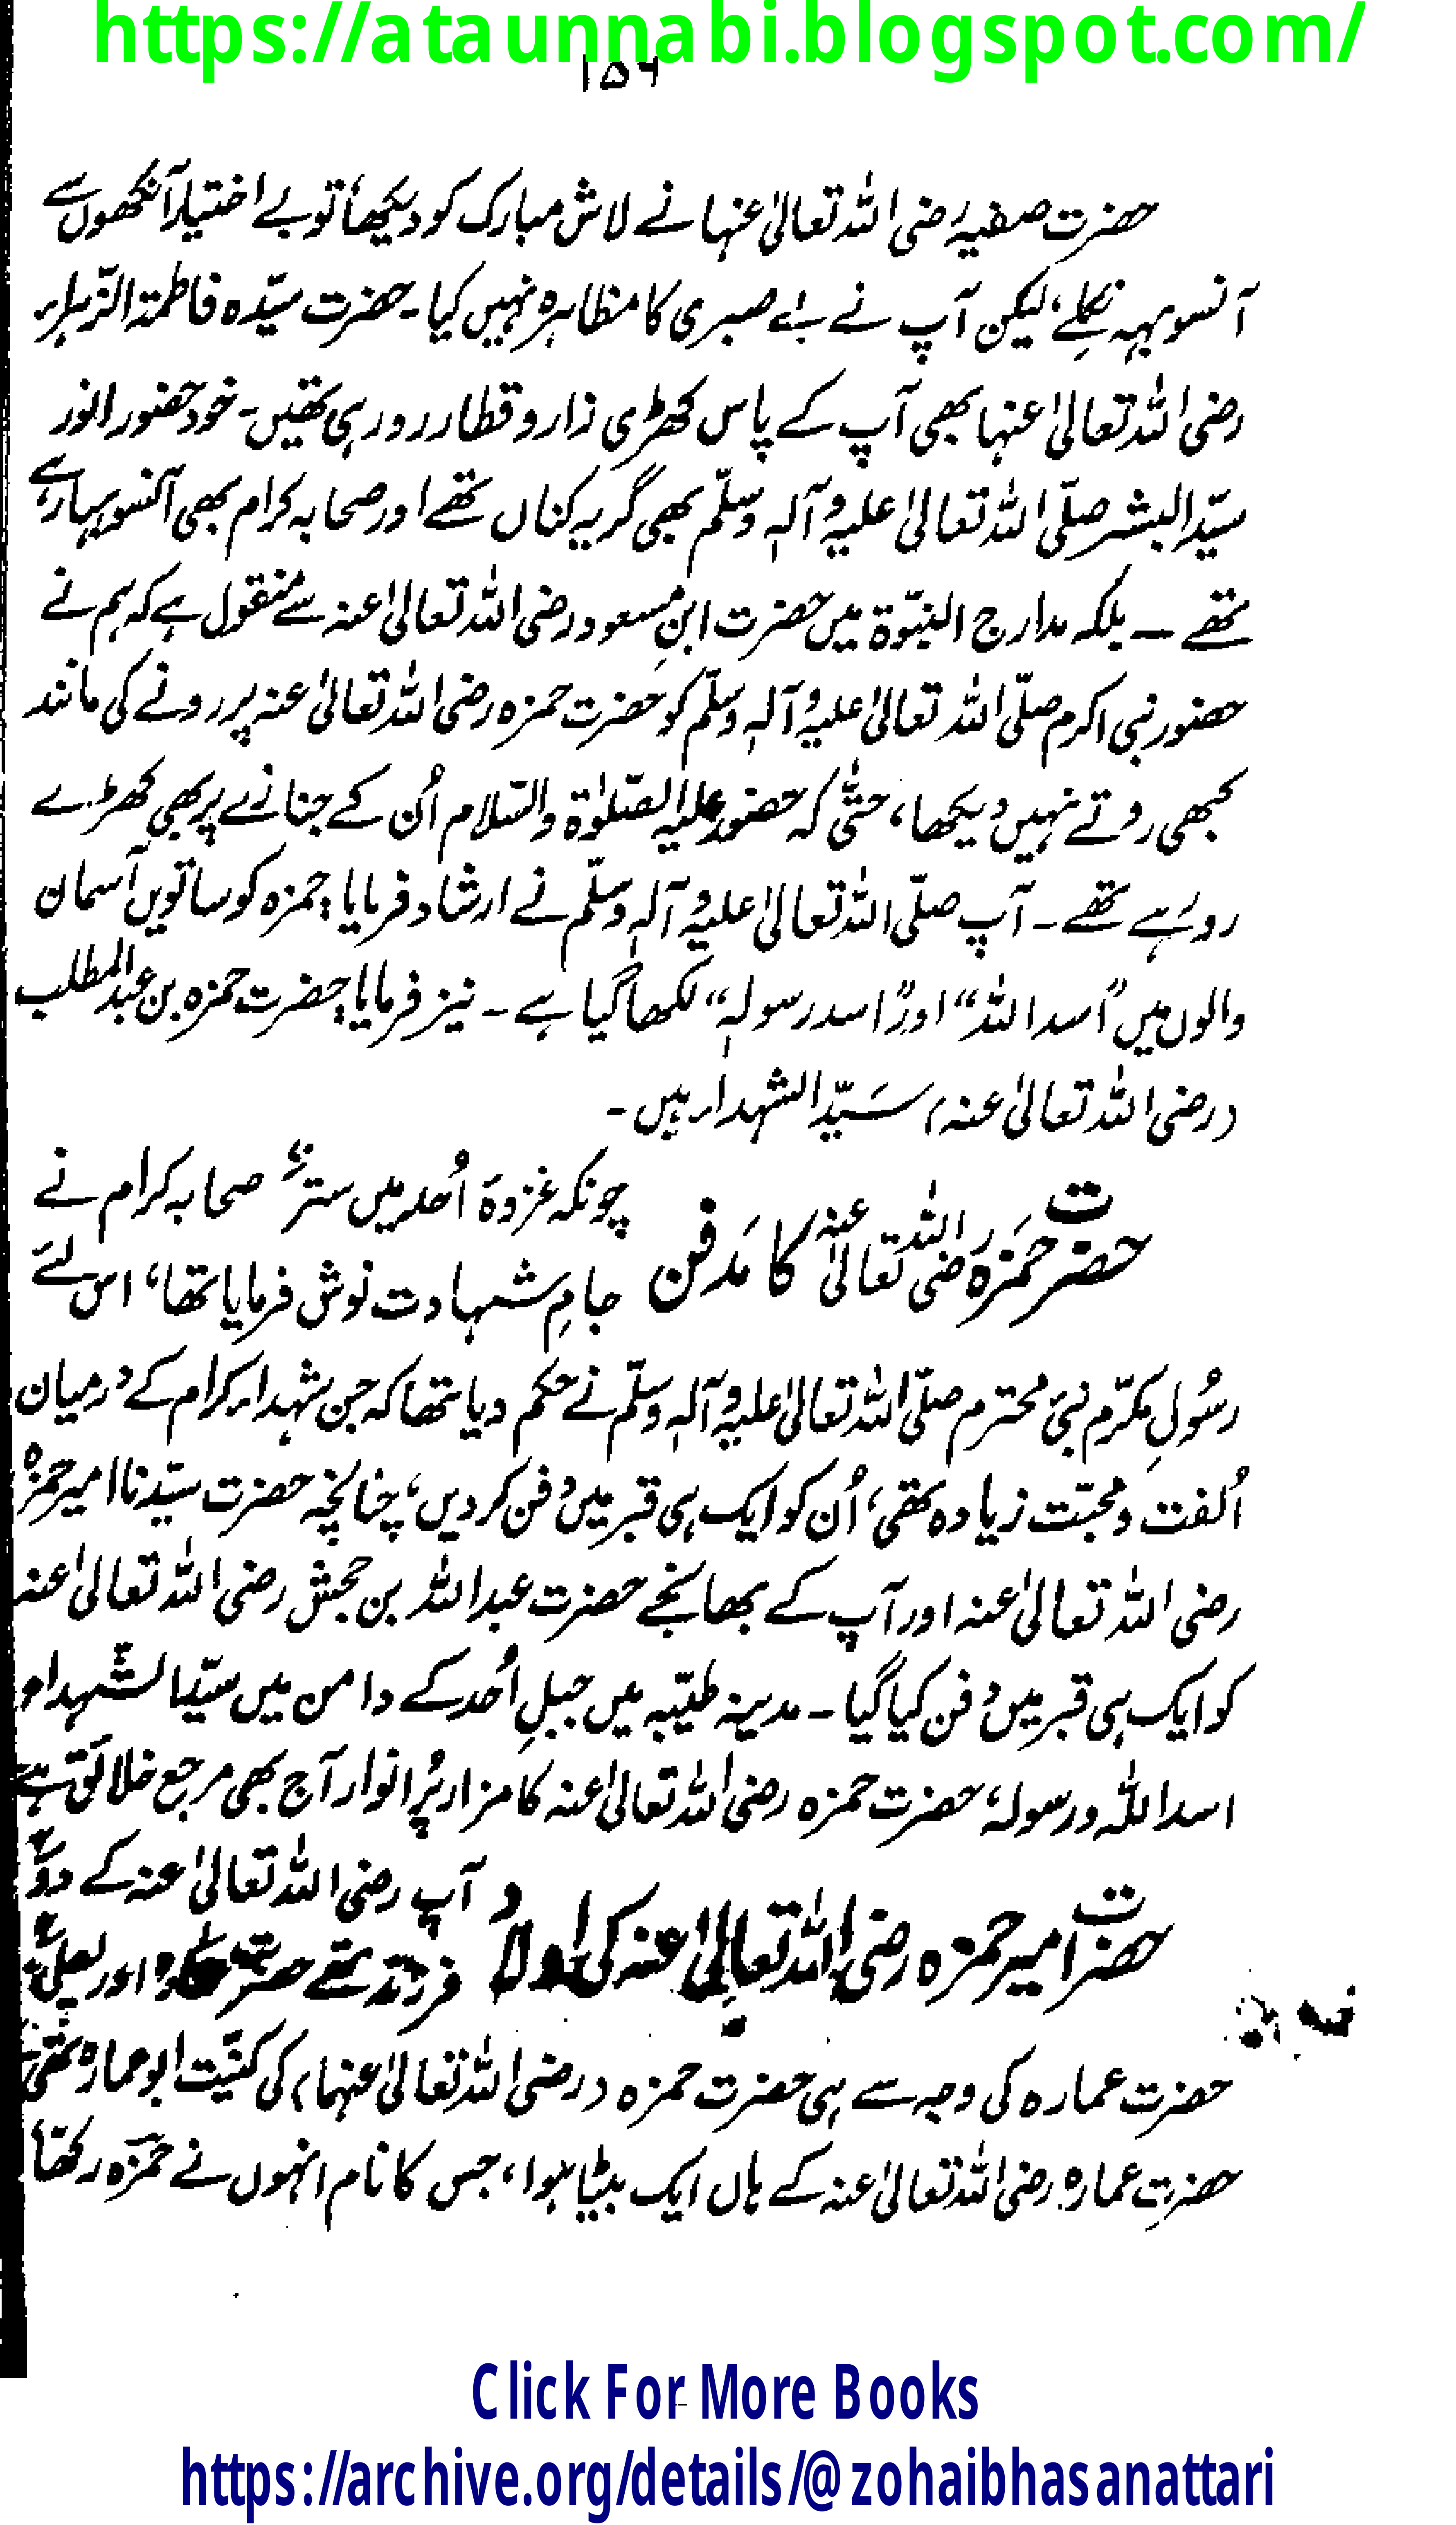 https://ataunnabi.blogspot.com/
۱۵۶
حضرت صفیہ رضی اللہ تعالیٰ عنہا نے لاش مبارک کو دیکھا، تو بے اختیار آنکھوں سے
آنسو بہہ نکلے، لیکن آپ نے بے صبری کا مظاہرہ نہیں کیا۔ حضرت سیّدہ فاطمۃ الزّہراء
رضی اللہ تعالیٰ عنہا بھی آپ کے پاس کھڑی زار و قطار رو رہی تھیں۔ خود حضور انور
سیّد البشر صلّی اللہ تعالیٰ علیہ وآلہٖ وسلّم بھی گریہ کناں تھے اور صحابہ کرام بھی آنسو بہا رہے
تھے ــ بلکہ مدارج النبوّۃ میں حضرت ابنِ مسعود رضی اللہ تعالیٰ عنہ سے منقول ہے کہ ہم نے
حضور نبی اکرم صلّی اللہ تعالیٰ علیہ وآلہٖ وسلّم کو حضرت حمزہ رضی اللہ تعالیٰ عنہ پر رونے کی مانند
کبھی روتے نہیں دیکھا، حتّٰی کہ حضور علیہ الصّلوٰۃ والسّلام اُن کے جنازے پر بھی کھڑے
رو رہے تھے۔ آپ صلّی اللہ تعالیٰ علیہ وآلہٖ وسلّم نے ارشاد فرمایا: حمزہ کو ساتویں آسمان
والوں میں ”اسد اللہ“ اور ”اسد رسولہٖ“ لکھا گیا ہے۔ نیز فرمایا: حضرت حمزہ بن عبد المطلب
(رضی اللہ تعالیٰ عنہ) سَیّد الشہداء ہیں۔
حضرت حمَزہ رضی اللہ تعالیٰ عنہ کا مَدفن
چونکہ غزوۂ اُحد میں ستر صحابہ کرام نے
جامِ شہادت نوش فرمایا تھا، اس لئے
رسُولِ مکرّم نبیٔ محترم صلّی اللہ تعالیٰ علیہ وآلہٖ وسلّم نے حکم دیا تھا کہ جن شہداء کرام کے درمیان
اُلفت و محبّت زیادہ تھی، اُن کو ایک ہی قبر میں دفن کر دیں، چنانچہ حضرت سیّدنا امیر حمزہ
رضی اللہ تعالیٰ عنہ اور آپ کے بھانجے حضرت عبد اللہ بن جحش رضی اللہ تعالیٰ عنہ
کو ایک ہی قبر میں دفن کیا گیا۔ مدینہ طیّبہ میں جبلِ اُحد کے دامن میں سیّد الشّہداء
اسد اللہ ورسولہ، حضرت حمزہ رضی اللہ تعالیٰ عنہ کا مزار پُر انوار آج بھی مرجع خلائق ہے
حضرت امیر حمزہ رضی اللہ تعالیٰ عنہ کی اولاد
آپ رضی اللہ تعالیٰ عنہ کے دو
فرزند تھے حضرت اور یعلیٰ
حضرت عمارہ کی وجہ سے ہی حضرت حمزہ (رضی اللہ تعالیٰ عنہما) کی کنیّت ابو عمارہ تھی
حضرت عمارہ رضی اللہ تعالیٰ عنہ کے ہاں ایک بیٹا ہوا، جس کا نام انہوں نے حمزہ رکھا
Click For More Books
https://archive.org/details/@zohaibhasanattari